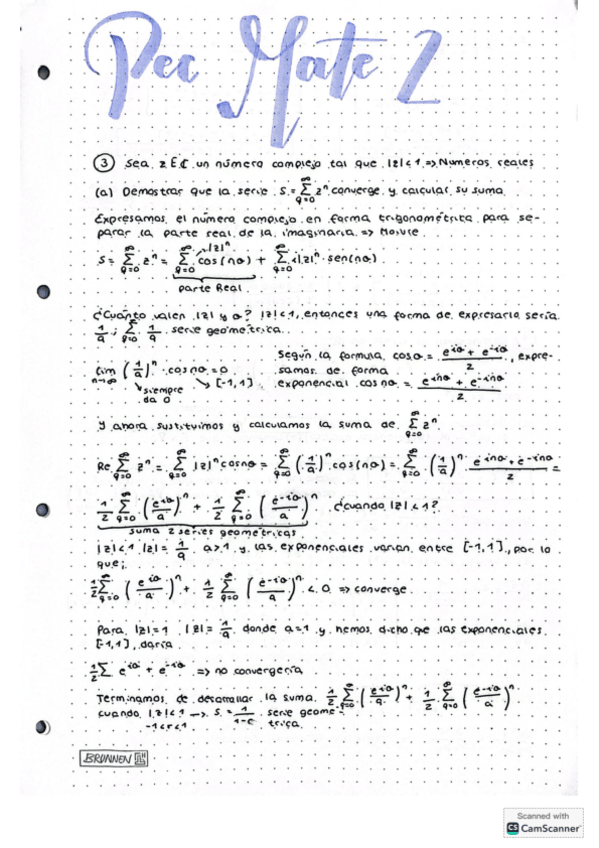 Pec Mate 2
③ Sea z ∈ ℂ un número complejo tal que |z| < 1 => Numeros reales
(a) Demostrar que la serie S = ∑_{q=0}^{∞} zⁿ converge y calcular su suma
Expresamos el número complejo en forma trigonométrica para se-
parar la parte real de la imaginaria => Moivre
S = ∑_{q=0}^{∞} zⁿ = ∑_{q=0}^{∞} |z|ⁿ cos(nα) + ∑_{q=0}^{∞} i|z|ⁿ · sen(nα)
parte Real
¿Cuánto valen |z| y α? |z| < 1, entonces una forma de expresarlo sería
1/a ; ∑_{q=0}^{∞} 1/a serie geométrica
lim_{n→∞} (1/a)ⁿ · cos nα = 0
siempre da 0
[-1,1]
Según la formula cos α = (e^{iα} + e^{-iα})/2, expre-
samos de forma
exponencial cos nα = (e^{inα} + e^{-inα})/2
Y ahora sustituimos y calculamos la suma de ∑_{q=0}^{∞} zⁿ
Re ∑_{q=0}^{∞} zⁿ = ∑_{q=0}^{∞} |z|ⁿ cos nα = ∑_{q=0}^{∞} (1/a)ⁿ cos(nα) = ∑_{q=0}^{∞} (1/a)ⁿ (e^{inα} + e^{-inα})/2 =
1/2 ∑_{q=0}^{∞} (e^{iα}/a)ⁿ + 1/2 ∑_{q=0}^{∞} (e^{-iα}/a)ⁿ ¿Cuando |z| < 1?
suma 2 series geométricas
|z| < 1 |z| = 1/a a > 1 y las exponenciales varian entre [-1,1], por lo
que;
1/2 ∑_{q=0}^{∞} (e^{iα}/a)ⁿ + 1/2 ∑_{q=0}^{∞} (e^{-iα}/a)ⁿ < 0 => converge
Para |z| = 1 |z| = 1/a donde a = 1 y hemos dicho que las exponenciales
[-1,1], daría
1/2 ∑ e^{iα} + e^{-iα} => no convergería
Terminamos de desarrollar la suma 1/2 ∑_{q=0}^{∞} (e^{iα}/a)ⁿ + 1/2 ∑_{q=0}^{∞} (e^{-iα}/a)ⁿ
cuando |z| < 1 → S = 1/(1-r) serie geomé-
-1<r<1 trica
BRUNNEN
Scanned with
CS CamScanner